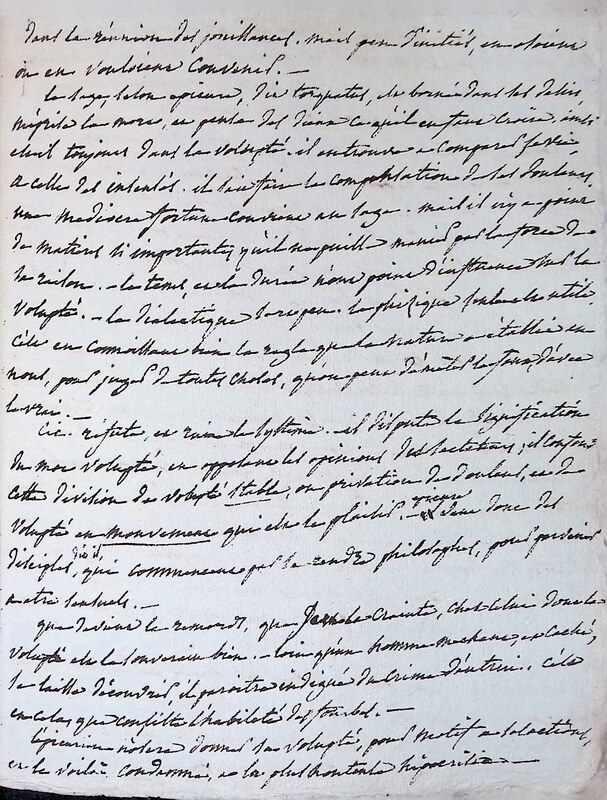 dans la réunion des jouissances. mais peu d'initiés, en osoient
ou en vouloient convenir. —
le sage, selon épicure, dit torquatus, est borné dans ses desirs,
méprise la mort, et pense des dieux ce qu'il en faut croire.
est il toujours dans la volupté. il en trouve a comparer sa vie
a celle des insensés. il sait faire la compensation de ses douleurs.
une mediocre fortune convient au sage. mais il n'y a point
de matieres si importantes qu'il ne puisse manier par la force de
sa raison. — le tems, et la durée n'ont point d'influence sur la
volupté. — la dialectique sert peu. la phisique seule est utile.
c'est en connoissant bien la regle que la nature a établie en
nous, pour juger de toutes choses, qu'on peut démêler le faux d'avec
le vrai. —
Cic. refute, et ruine le systême. — il dispute la signification
du mot volupté, en opposant les opinions des sectateurs; il confond
cette division de volupté stable, ou privation de douleur, et de
volupté en mouvement qui est le plaisir. — donc des
disciples, dit il, qui commencent par se rendre philosophes, pour parvenir
a etre sensuels. —
que devient le remords, que la crainte, chez celui dont la
volupté est le souverain bien. — loin qu'un homme mechant, et caché,
se laisse découvrir, il paroitra indigné du crime d'autrui. c'est
en cela que consiste l'habileté des fourbes. —
Epicurien n'osera donner sa volupté, pour motif a ses actions,
et le voilà condamné, a la plus honteuse hipocrisie. —